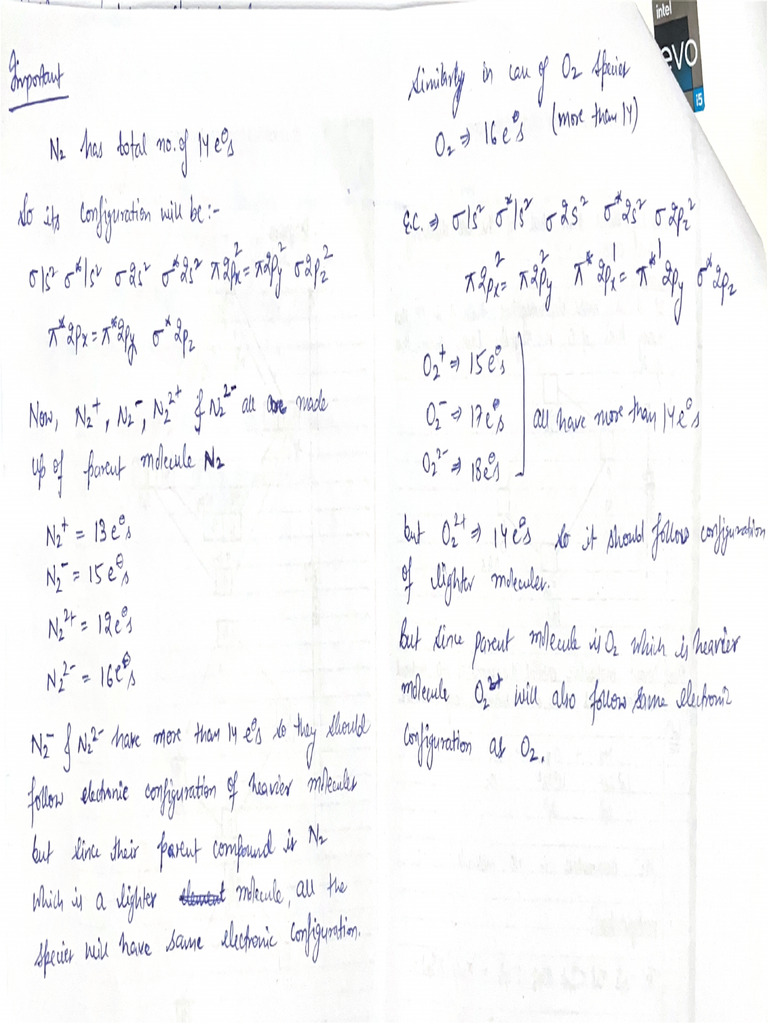 Important
N₂ has total no. of 14 e⊖s
So its configuration will be:-
σ1s² σ*1s² σ2s² σ*2s² π2px² = π2py² σ2pz²
π*2px = π*2py σ*2pz
Now, N₂⁺, N₂⁻, N₂²⁺ & N₂²⁻ all are made
up of parent molecule N₂
N₂⁺ = 13 e⊖s
N₂⁻ = 15 e⊖s
N₂²⁺ = 12 e⊖s
N₂²⁻ = 16 e⊖s
N₂⁻ & N₂²⁻ have more than 14 e⊖s so they should
follow electronic configuration of heavier molecules
but since their parent compound is N₂
which is a lighter element molecule, all the
species will have same electronic configuration.
Similarly in case of O₂ species
O₂ ⇒ 16 e⊖s (more than 14)
E.C. ⇒ σ1s² σ*1s² σ2s² σ*2s² σ2pz²
π2px² = π2py² π*2px¹ = π*2py¹ σ*2pz
O₂⁺ ⇒ 15 e⊖s
O₂⁻ ⇒ 17 e⊖s all have more than 14 e⊖s
O₂²⁻ ⇒ 18 e⊖s
but O₂²⁺ ⇒ 14 e⊖s so it should follow configuration
of lighter molecules.
But since parent molecule is O₂ which is heavier
molecule O₂²⁺ will also follow same electronic
configuration as O₂.
intel
evo
i5